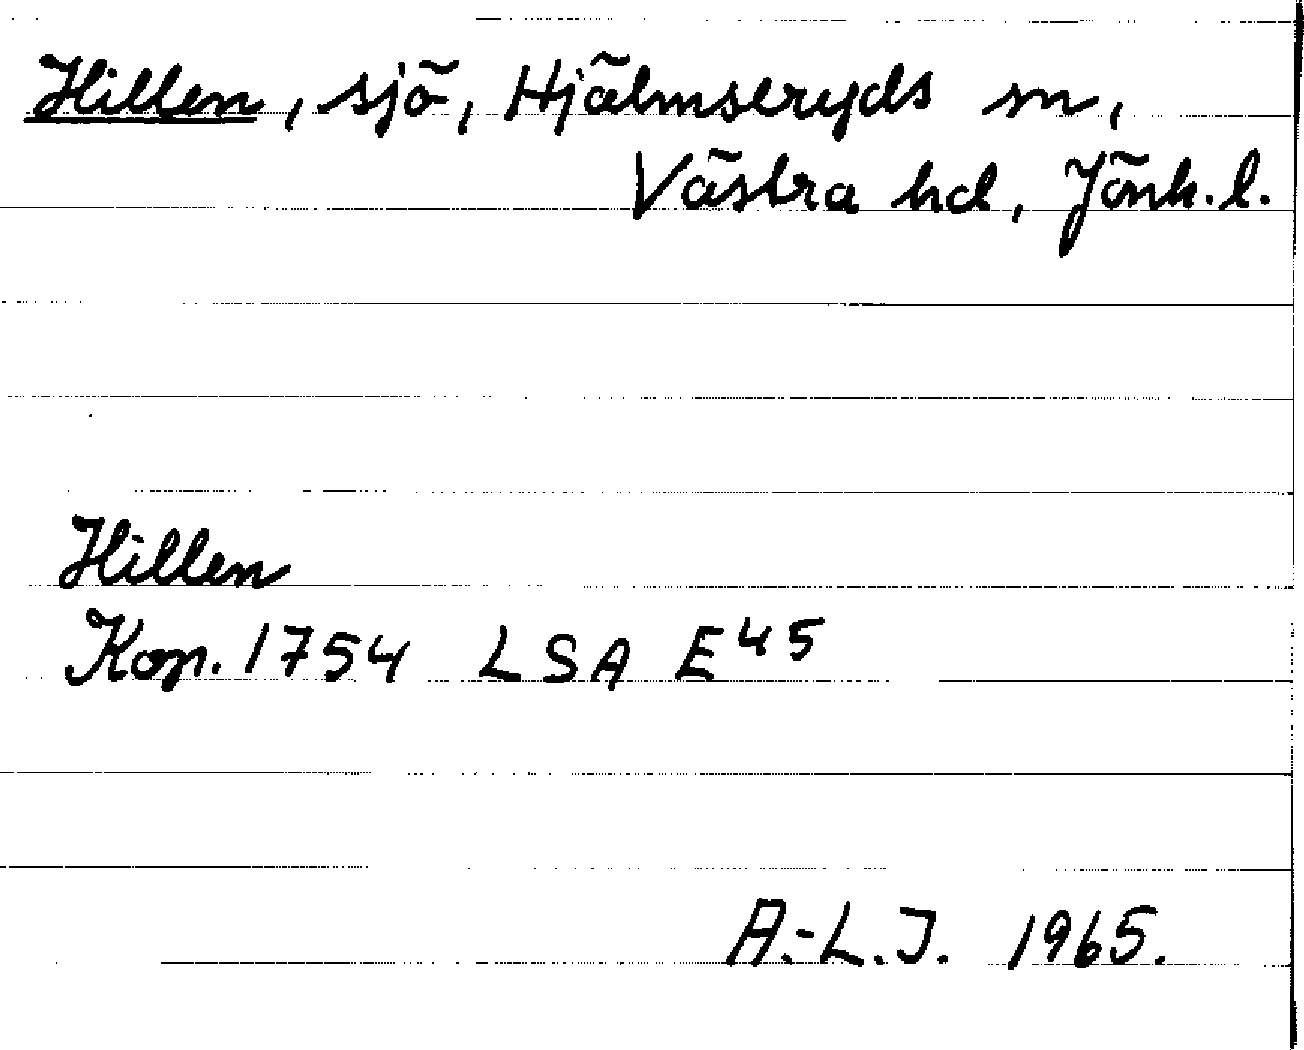 Hillen, sjö, Hjälmseryds sn,
Västra hd, Jönk. l.
Hillen
Kop. 1754 LSA E45
A.-L.J. 1965.